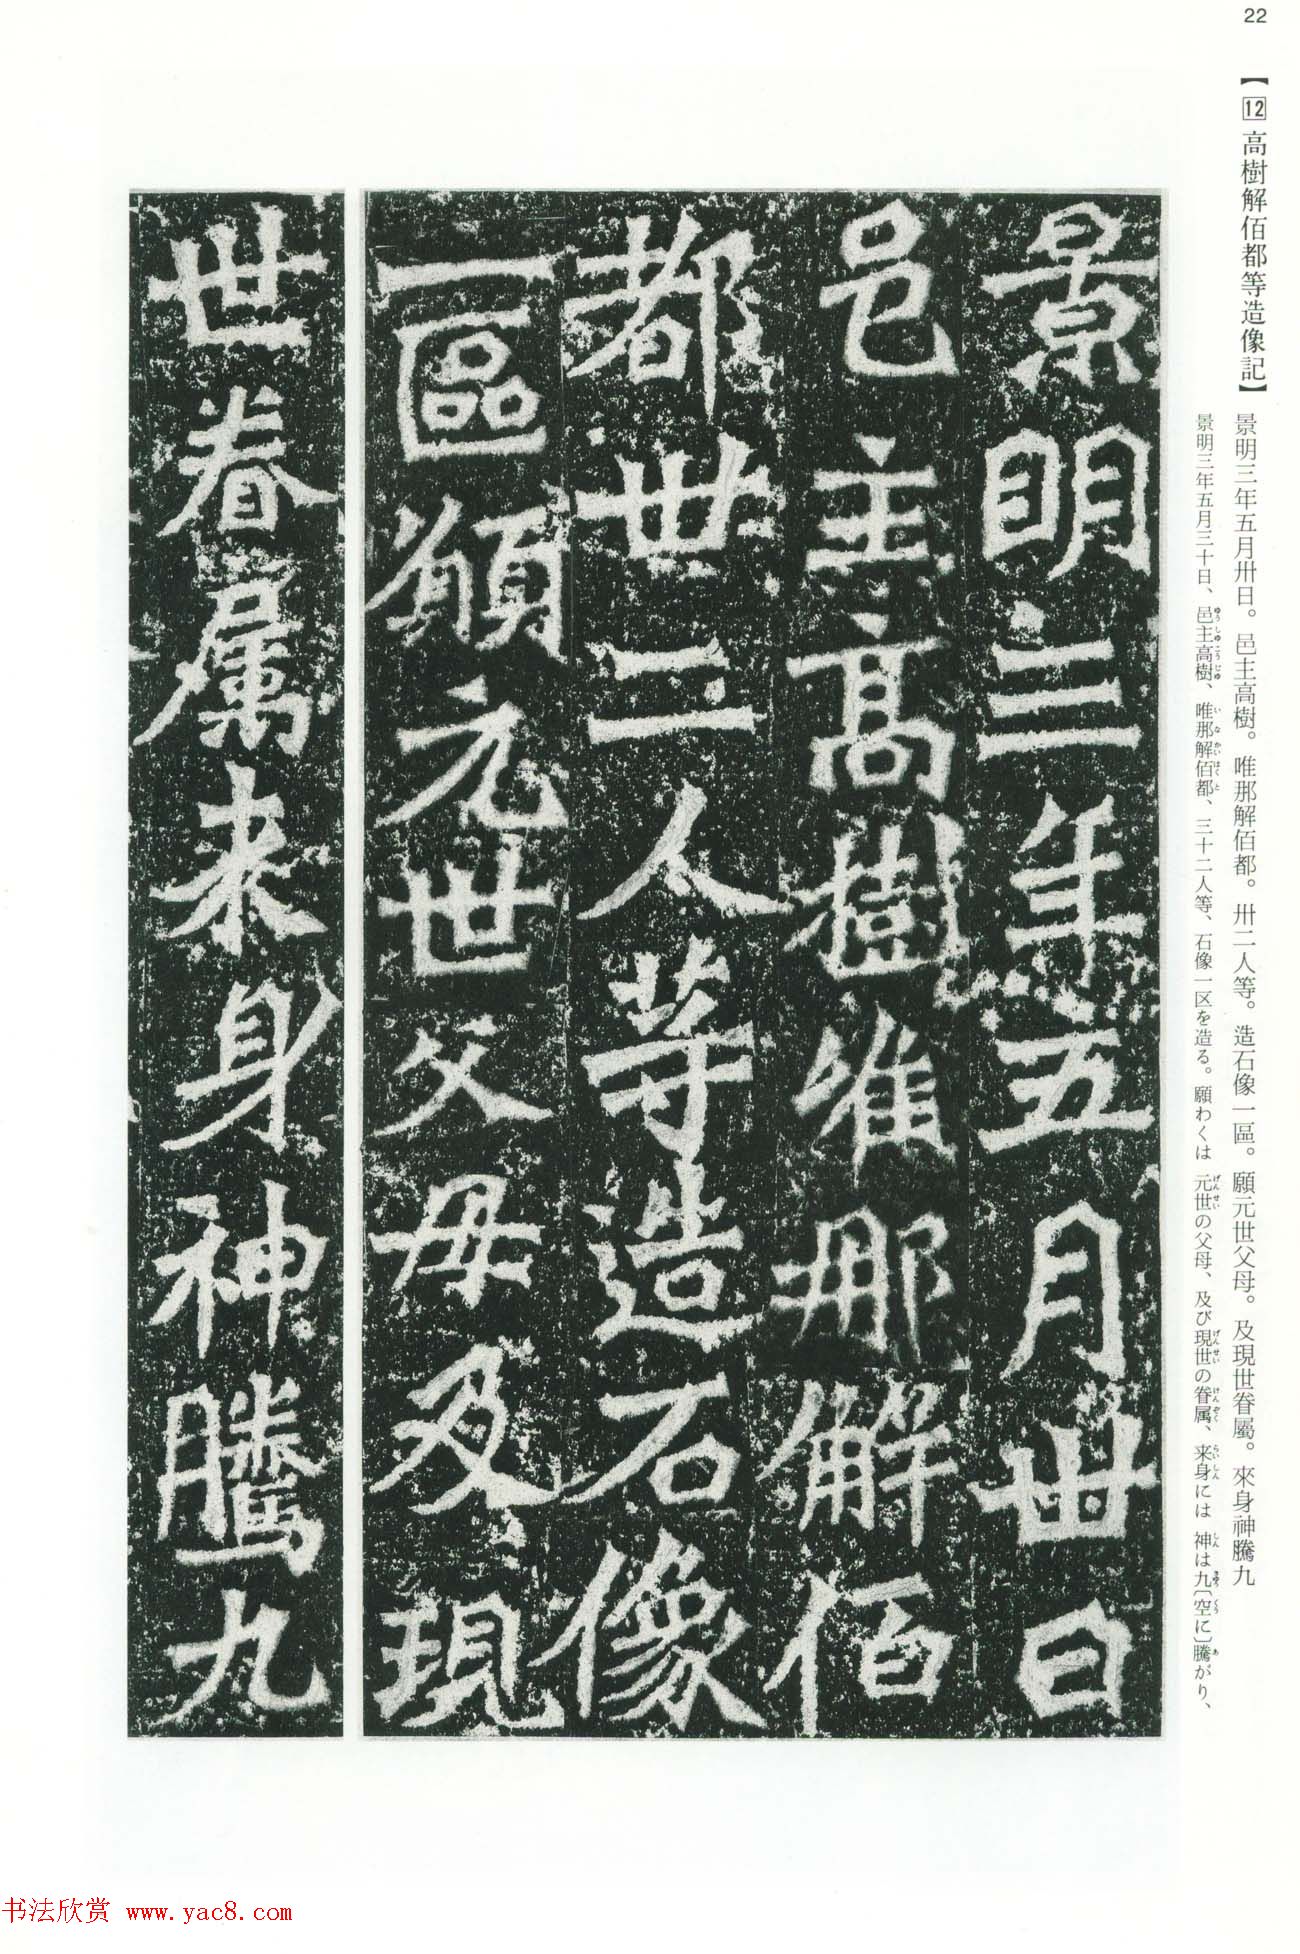 22
【12高樹解佰都等造像記】
景明三年五月卅日。邑主高樹。唯那解佰都。卅二人等。造石像一區。願元世父母。及現世眷屬。來身神騰九
景明三年五月三十日、邑主高樹、唯那解佰都、三十二人等、石像一区を造る。願わくは元世の父母、及び現世の眷属、来身には神は九〔空に〕騰がり、
景明三年五月卅日
邑主高樹維那解佰
都卅二人等造石像
一區願元世父母及現
世眷属来身神騰九
书法欣赏 www.yac8.com